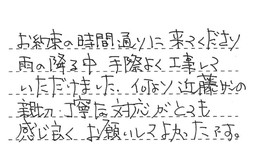 お約束の時間通りに来てくださり
雨の降る中、手際よく工事して
いただけました。何より近藤さんの
親切、丁寧な対応がとても
感じ良く、お願いして良かったです。